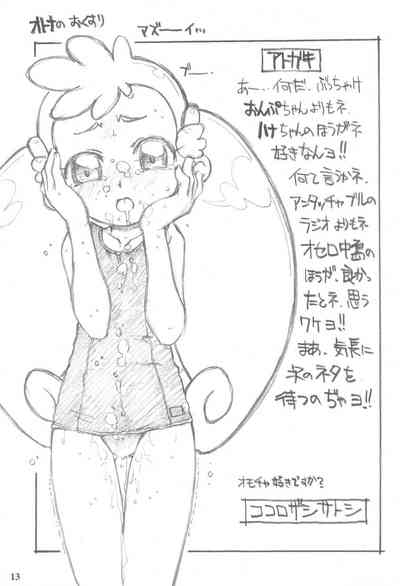 オトナの おくすり
アズーーイ...
ブー...
アトガキ
あー...何だ、ぶっちゃけ
おんぷちゃんよりもネ、
ハナちゃんのほうがネ
好きなんヨ!!
何て言うかネ、
アンタッチャブルの
ラジオよりもネ
オセロ中島の
ほうが、良かっ
たとネ、思う
ワケヨ!!
まあ、気長に
次のネタを
待つのぢゃヨ!!
オモチャ好きですか?
ココロザシサトシ
13